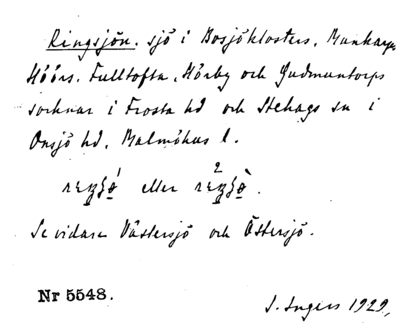 Ringsjön. sjö i Bosjöklosters, Munkarps
Höörs. Fulltofta, Hörby och Gudmuntorps
socknar i Frosta hd och Stehags sn i
Onsjö hd, Malmöhus l.
eller
Se vidare Västersjö och Östersjö.
Nr 5548.
S. Ingers 1929,